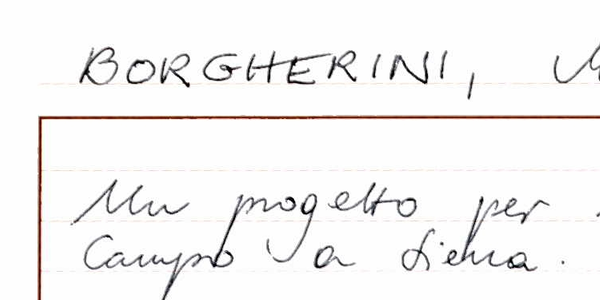 BORGHERINI,
Un progetto per
Campo a Siena.